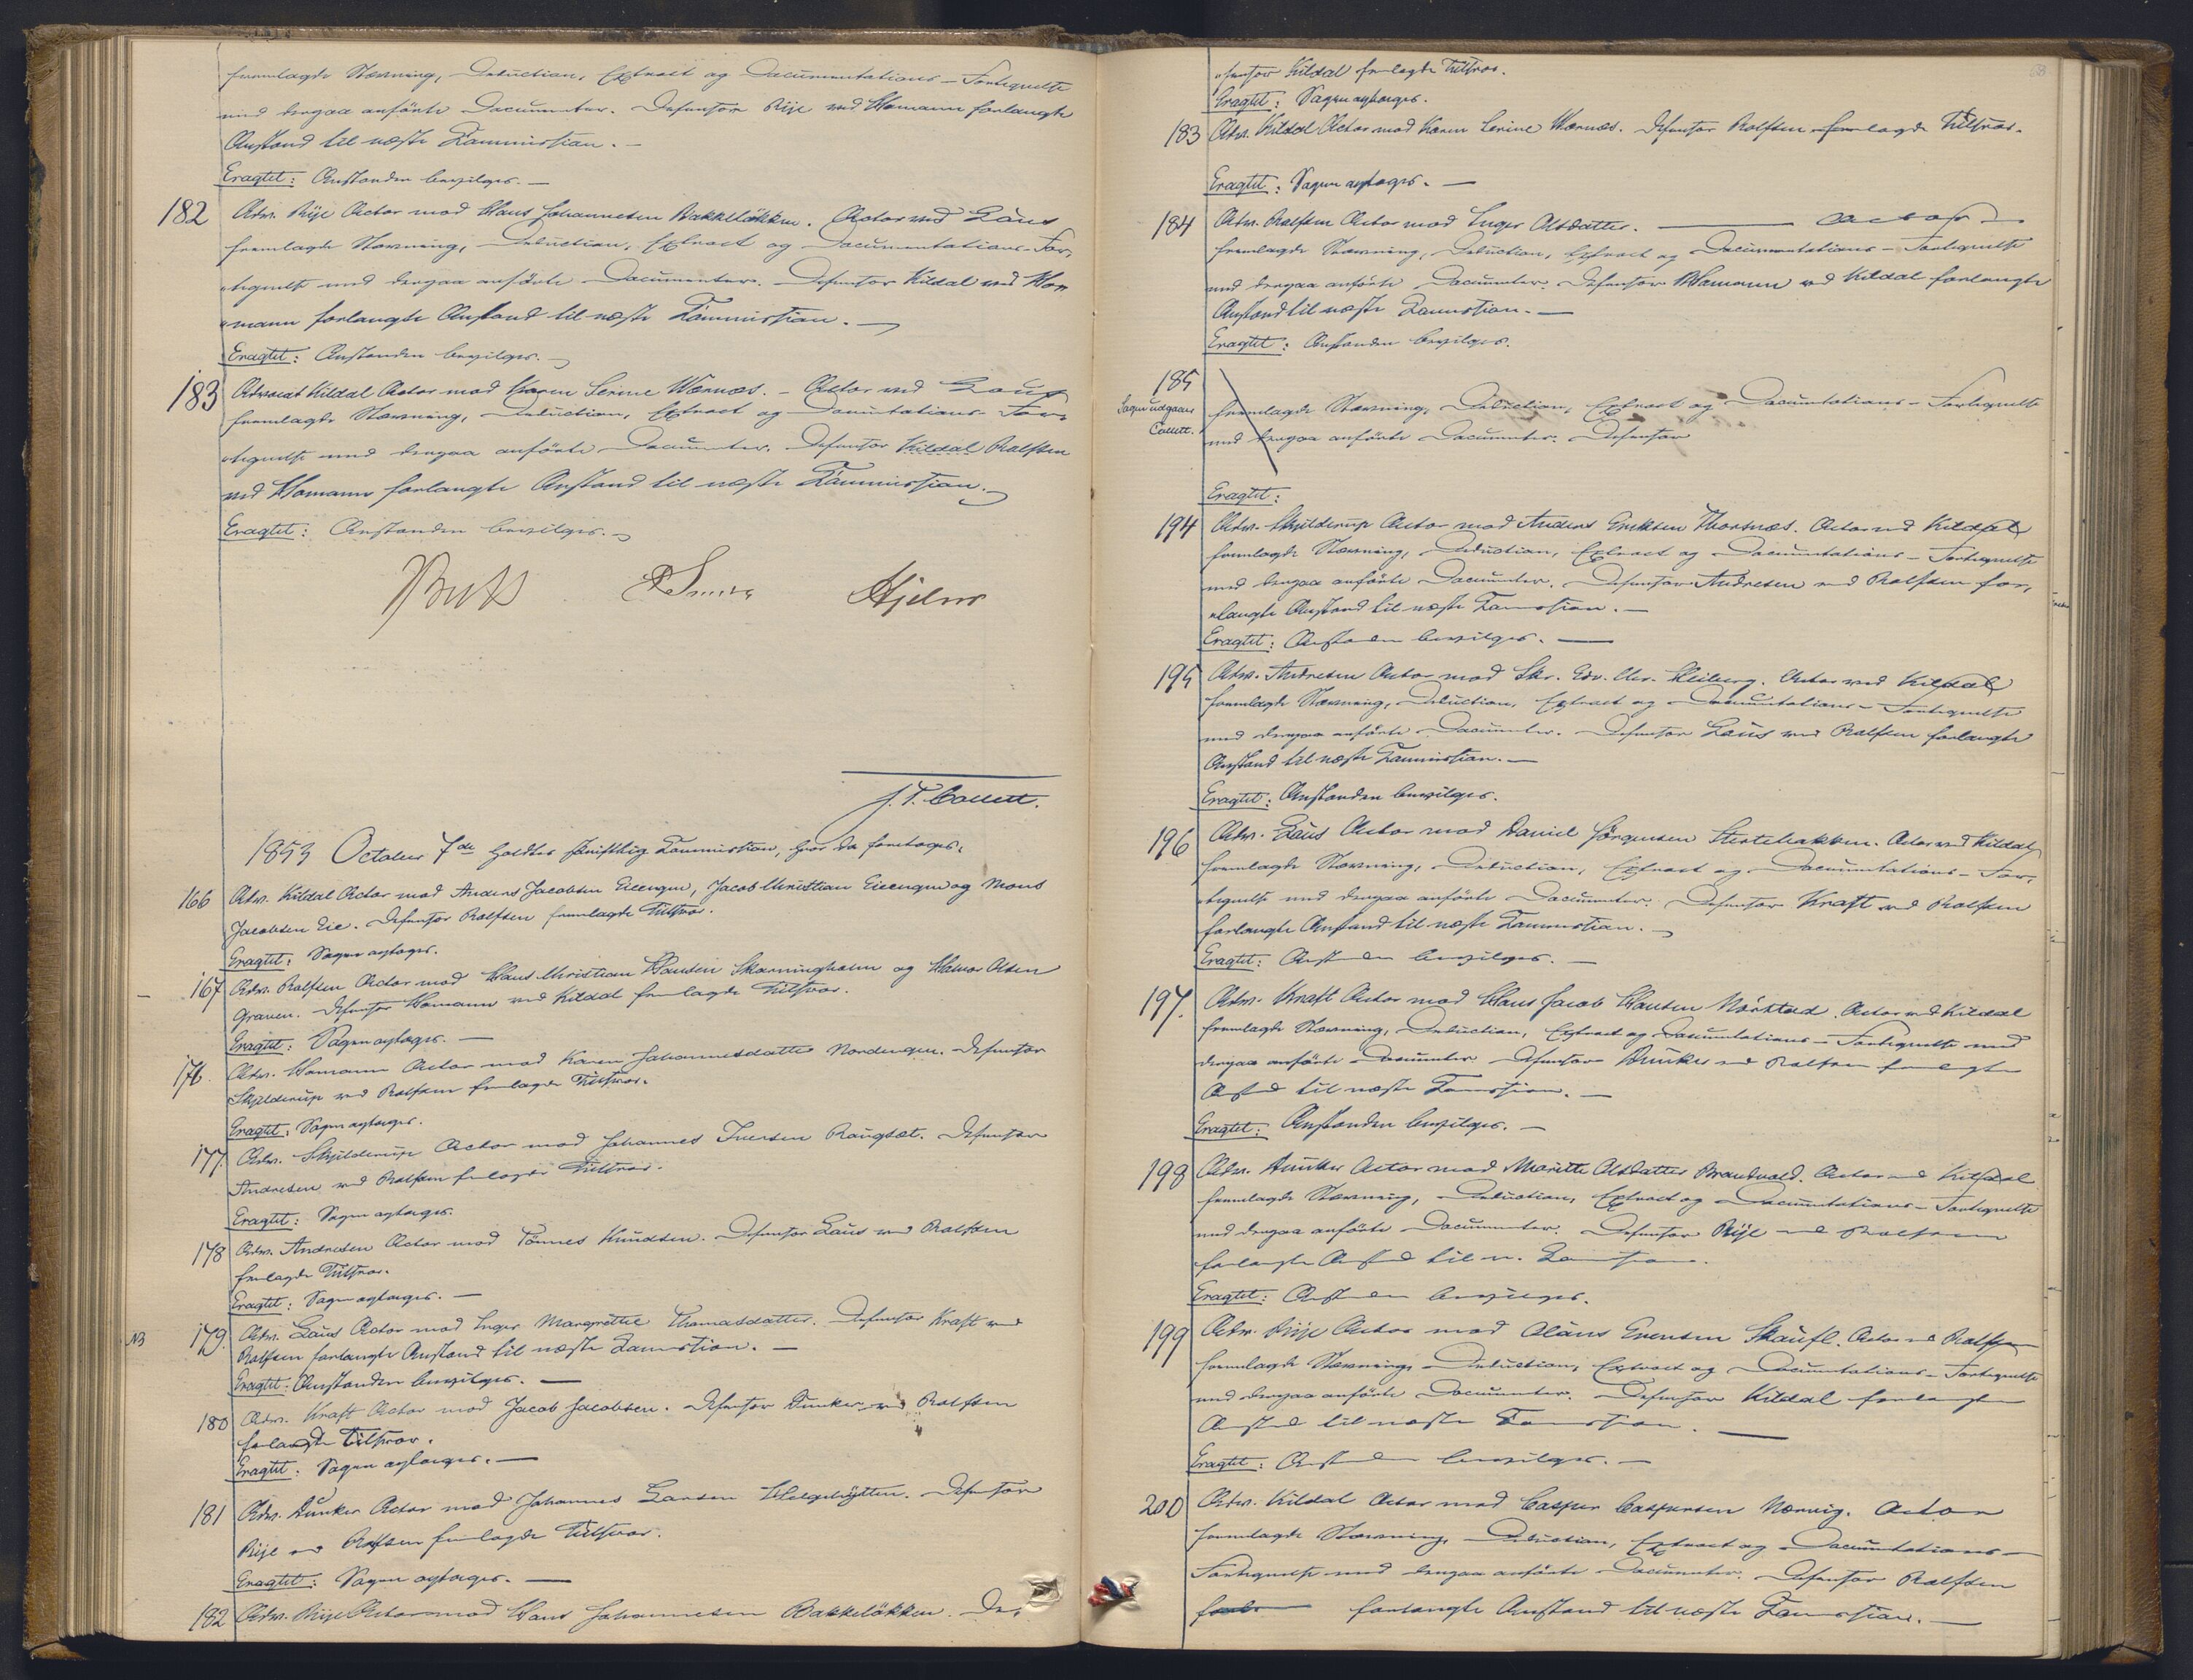 fremlagde Stævning, Deduction, Extract og Documentations-Fortegnelse
med derpaa anførte Documenter. Defensor Rije ved Homann forlangte
Anstand til næste Kommission. —
Eragtet: Anstanden bevilges. —
182 Adv. Rije Actor mod Hans Johannesen Bakkeløkken. Actor ved Laus
fremlagde Stævning, Deduction, Extract og Documentations-For-
tegnelse med derpaa anførte Documenter. Defensor Kildal ved Ho-
mann forlangte Anstand til næste Kommission. —
Eragtet: Anstanden bevilges. —
183 Advocat Kildal Actor mod Karen Serine Wærnæs. - Actor ved Laus
fremlagde Stævning, Deduction, Extract og Documentations-For-
tegnelse med derpaa anførte Documenter. Defensor Kildal Rolfsen
ved Homann forlangte Anstand til næste Kommission.
Eragtet: Anstanden bevilges.
Hjelm
J. T. Collett.
1853 October 7de holdtes skriftlig Kommission, hvor da foretoges:
166 Adv. Kildal Actor mod Anders Jacobsen Eieengen, Jacob Christian Eieengen og Mons
Jacobsen Eie. Defensor Rolfsen fremlagde Tilsvar.
Eragtet: Sagen optages.
167 Adv. Rolfsen Actor mod Hans Christian Hansen Skarningholm og Halvor Olsen
Graven. Defensor Homann ved Kildal fremlagde Tilsvar.
Eragtet: Sagen optages. —
176. Adv. Homann Actor mod Karen Johannesdatter Nordengen. Defensor
Skjilderup ved Rolfsen fremlagde Tilsvar.
Eragtet: Sagen optages.
177. Adv. Skjilderup Actor mod Johannes Iversen Raugsæt. Defensor
Andresen ved Rolfsen fremlagde Tilsvar.
Eragtet: Sagen optages.
178 Adv. Andresen Actor mod Tönnes Knudsen. Defensor Laus ved Rolfsen
fremlagde Tilsvar.
Eragtet: Sagen optages. —
NB 179. Adv. Laus Actor mod Inger Margrethe Thomasdatter. Defensor Kraft ved
Rolfsen forlangte Anstand til næste Kommission. —
Eragtet: Anstanden bevilges. —
180 Adv. Kraft Actor mod Jacob Jacobsen. Defensor Dunker ved Rolfsen
fremlagde Tilsvar.
Eragtet: Sagen optages. —
181 Adv. Dunker Actor mod Johannes Larsen Helgehytten. Defensor
Rije ved Rolfsen fremlagde Tilsvar.
Eragtet: Sagen optages. —
182 Adv. Rije Actor mod Hans Johannesen Bakkeløkken. De-
fensor Kildal fremlagde Tilsvar.
Eragtet: Sagen optages.
183 Adv. Kildal Actor mod Karen Serine Wærnæs. Defensor Rolfsen fremlagde Tilsvar.
Eragtet: Sagen optages. —
184 Adv. Rolfsen Actor mod Inger Olsdatter. — Actor
fremlagde Stævning, Deduction, Extract og Documentations-Fortegnelse
med derpaa anførte Documenter. Defensor Homann ved Kildal forlangte
Anstand til næste Kommission. —
Eragtet: Anstanden bevilges.
185
Sagen udgaaer
Collett.
fremlagde Stævning, Deduction, Extract og Documentations-Fortegnelse
med derpaa anførte Documenter. Defensor
Eragtet:
194 Adv. Skjilderup Actor mod Anders Eriksen Thorsnæs. Actor ved Kildal
fremlagde Stævning, Deduction, Extract og Documentations-Fortegnelse
med derpaa anførte Documenter. Defensor Andresen ved Rolfsen for-
langte Anstand til næste Kommission. —
Eragtet: Anstanden bevilges. —
195 Adv. Andresen Actor mod Skr. Edv. Chr. Heiberg. Actor ved Kildal
fremlagde Stævning, Deduction, Extract og Documentations-Fortegnelse
med derpaa anførte Documenter. Defensor Laus ved Rolfsen forlangte
Anstand til næste Kommission. —
Eragtet: Anstanden bevilges.
196 Adv. Laus Actor mod Daniel Jørgensen Stertebakken. Actor ved Kildal
fremlagde Stævning, Deduction, Extract og Documentations-For-
tegnelse med derpaa anførte Documenter. Defensor Kraft ved Rolfsen
forlangte Anstand til næste Kommission. —
Eragtet: Anstanden bevilges. —
197. Adv. Kraft Actor mod Hans Jacob Hansen Nörstad. Actor ved Kildal
fremlagde Stævning, Deduction, Extract og Documentations-Fortegnelse med
derpaa anførte Documenter. Defensor Dunker ved Rolfsen forlangte
Anstand til næste Kommission. —
Eragtet: Anstanden bevilges. —
198 Adv. Dunker Actor mod Marthe Olsdatter Brandvold. Actor ved Kildal
fremlagde Stævning, Deduction, Extract og Documentations-Fortegnelse
med derpaa anførte Documenter. Defensor Rije ved Rolfsen
forlangte Anstand til n. Kommission.
Eragtet: Anstanden bevilges.
199 Adv. Rije Actor mod Olaus Evensen Skaufl. Actor ved Rolfsen
fremlagde Stævning, Deduction, Extract og Documentations-Fortegnelse
med derpaa anførte Documenter. Defensor Kildal forlangte
Anstand til næste Kommission. —
Eragtet: Anstanden bevilges. —
200 Adv. Kildal Actor mod Casper Caspersen Nærvig. Actor
fremlagde Stævning, Deduction, Extract og Documentations-
Fortegnelse med derpaa anførte Documenter. Defensor Rolfsen
forlangte Anstand til næste Kommission. —